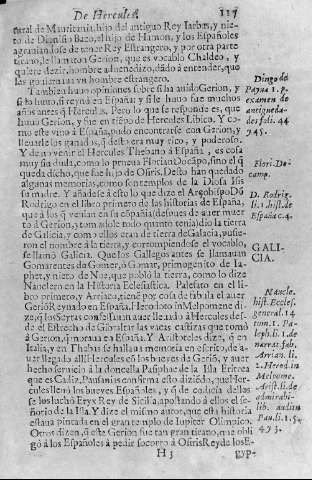 De Hercules.
117
tural de Mauritania, hijo del antiguo Rey Iarbas, y nie-
to de Dionisio Baco, el hijo de Hamon, y los Españoles
agrauian dose de tener Rey Estrangero, y por otra parte
tirano, le llamaron Gerion, que es vocablo Chaldeo, y
quiere dezir, hombre aduenedizo, dado a entender, que
las governaua vn hombre estrangero.
Tambien huuo opiniones sobre si ha auido Gerion, y
si ha huuo, si reynò en España: y si le huuo fue muchos
años antes q̃ Hercules. Pero lo que se responde es, que
huuo Gerion, y fue en tiẽpo de Hercules Libico. Y co-
mo este vino à España, pudo encontrarse con Gerion, y
lleuarle los ganados, q̃ desto era muy rico, y poderoso.
Y de no venir el Hercules Thebano à España, es cosa
muy sin duda, como lo prueua Florian Docãpo, sino el q̃
queda dicho, que fue hijo de Osiris. Desto han quedado
algunas memorias, como son templos de la Diosa Isis
su madre. Y añadese à esto lo que dize el Arçobispo Dõ
Rodrigo en el libro primero de las historias de España,
que à los q̃ venian en cõpañia despues de auer muer-
to à Gerion, y tam asolè todo quanto tenia dio la tierra
de Galicia, y como ellos eran de tierra de Galacia, pusie-
ron el nombre à la tierra, y corrompiendose el vocablo,
se llamò Galicia. Que los Gallegos antes se llamauan
Gomareones de Gomer, ò Gomar, primogenito de Ia-
phet, y nieto de Noe, que poblò la tierra, como lo dize
Nanclero en la Historia Eclesiastica. Palefato en el li-
bro primero, y Arriano, tienẽ por cosa de fabula el auer
Geriõ Reynado en España. Herodoto in Melpomene di-
ze, q̃ los Scytas confessauan auer llegado à Hercules des-
de el Estrecho de Gibraltar las vacas castizas que tomò
à Gerion, q̃ moraua en España. Y Aristoteles dize, q̃ en
Italia, y en Thebas se hallaua memoria en escrito, de a-
uer llegado alli Hercules cõ los bueyes de Geriõ, y auer
hecho seruicio à la doncella Pasiphae de la Isla Eritrea
que es Cadiz. Pausanias confirma esto diziẽdo, que Her-
cules lleuò los bueyes Españoles, y q̃ de codicia dellos
se los luchò Eryx Rey de Sicilia, apostando à ellos el se-
ñorio de la Isla. Y dize el mismo autor, que esta historia
estaua pintada en el gran templo de Iupiter Olimpico.
Otros dizen, q̃ este Gerion fue tan gran tirano, que obli
gò à los Españoles à pedir socorro à Osiris Rey de los E-
H 3
gyp-
Diago de
Payna 1. p.
examen de
antigueda-
des foli. 44
y 45.
Flori. Do-
camp.
D. Rodrig.
li. 1. hist. de
España c. 4.
GALI-
CIA.
Naucle.
hist. Eccles.
general. 14
tom. 1. Pa-
leph. li. 1. de
narrat. fab.
Arrian. li.
2. Herod. in
Melpome.
Arist. li. de
admirabi-
lib. auditu
Pau. li. 1. 5.
493.